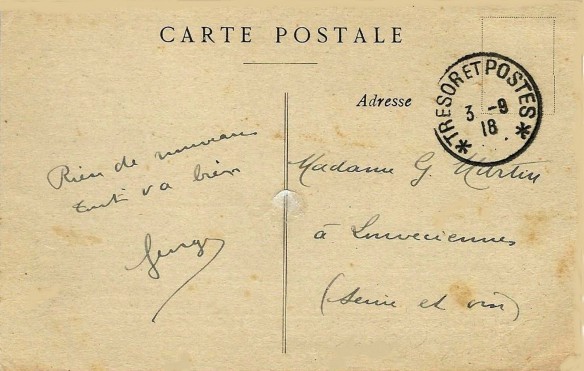 CARTE POSTALE
Adresse
* TRESOR ET POSTES *
3 -9
18
Rien de nouveau
tout va bien
Madame G Martin
à Louveciennes
(Seine et oise)